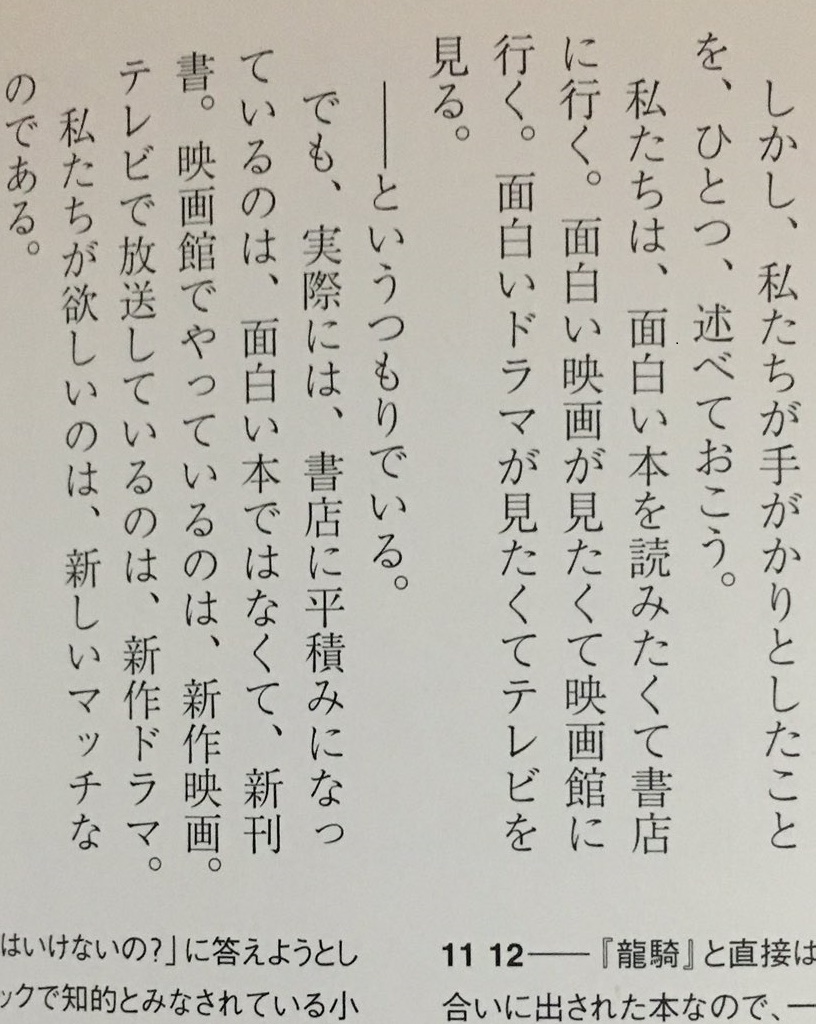 しかし、私たちが手がかりとしたこと
を、ひとつ、述べておこう。
私たちは、面白い本を読みたくて書店
に行く。面白い映画が見たくて映画館に
行く。面白いドラマが見たくてテレビを
見る。
――というつもりでいる。
でも、実際には、書店に平積みになっ
ているのは、面白い本ではなくて、新刊
書。映画館でやっているのは、新作映画。
テレビで放送しているのは、新作ドラマ。
私たちが欲しいのは、新しいマッチな
のである。
はいけないの?」に答えようとし
ックで知的とみなされている小
11 12――『龍騎』と直接は
合いに出された本なので、一